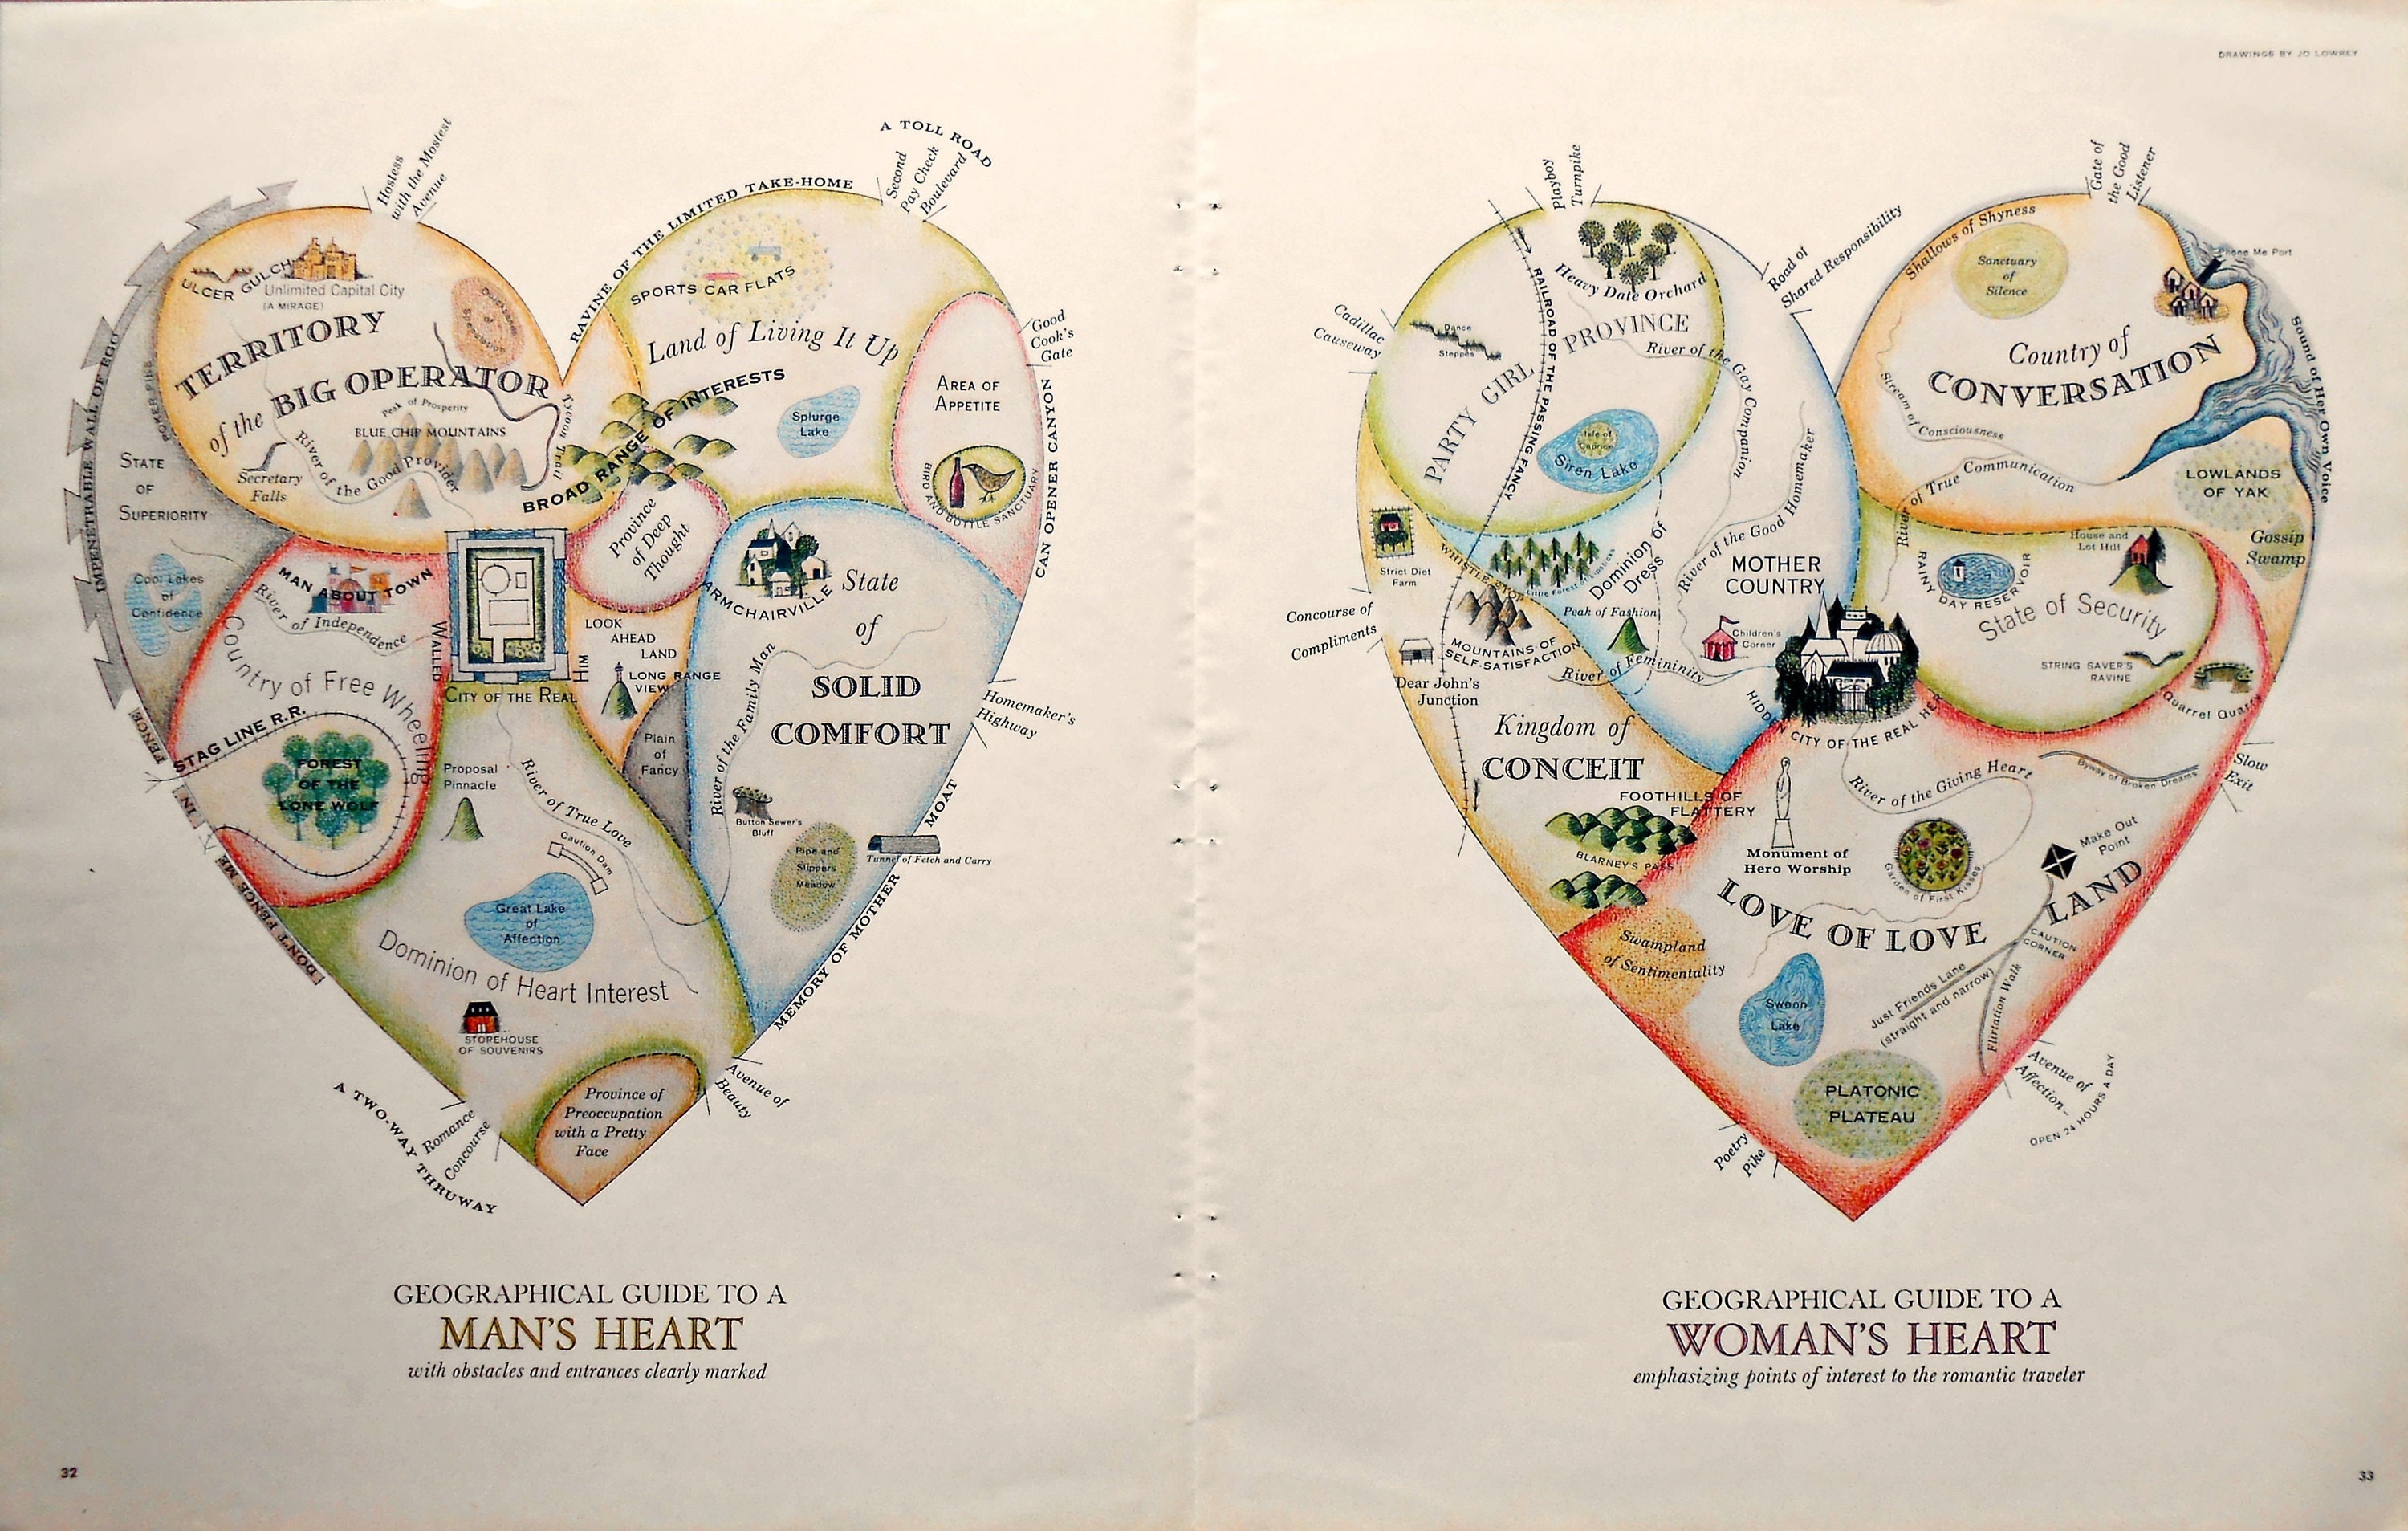 DRAWINGS BY JO LOWREY
Hostess
with the Mostest
Avenue
A TOLL ROAD
Second
Pay Check
Boulevard
RAVINE OF THE LIMITED TAKE-HOME
IMPENETRABLE WALL OF EGO
ULCER GULCH
Unlimited Capital City
(A MIRAGE)
Quicksands
of
Speculation
TERRITORY
of the BIG OPERATOR
Peak of Prosperity
BLUE CHIP MOUNTAINS
River of the Good Provider
Secretary
Falls
Tycoon Trail
POKER PIKE
STATE
OF
SUPERIORITY
Cool Lakes
of
Confidence
SPORTS CAR FLATS
Land of Living It Up
BROAD RANGE OF INTERESTS
Splurge
Lake
AREA OF
APPETITE
BIRD AND BOTTLE SANCTUARY
Good
Cook's
Gate
CAN OPENER CANYON
Province
of Deep
Thought
MAN ABOUT TOWN
River of Independence
Country of Free Wheeling
STAG LINE R.R.
FOREST
OF THE
LONE WOLF
WALLED
CITY OF THE REAL
HIM
LOOK
AHEAD
LAND
LONG RANGE
VIEW
Plain
of
Fancy
ARMCHAIRVILLE
State
of
SOLID
COMFORT
River of the Family Man
Button Sewer's
Bluff
Pipe and
Slippers
Meadow
Tunnel of Fetch and Carry
Homemaker's
Highway
MEMORY OF MOTHER MOAT
DON'T FENCE ME IN FENCE
Proposal
Pinnacle
River of True Love
Caution Dam
Great Lake
of
Affection
Dominion of Heart Interest
STOREHOUSE
OF SOUVENIRS
Province of
Preoccupation
with a Pretty
Face
Avenue of
Beauty
Romance
Concourse
A TWO-WAY THRUWAY
GEOGRAPHICAL GUIDE TO A
MAN'S HEART
with obstacles and entrances clearly marked
32
Playboy
Turnpike
Cadillac
Causeway
Heavy Date Orchard
RAILROAD OF THE PASSING FANCY
Dance
Steppes
PARTY GIRL PROVINCE
Isle of
Caprice
Siren Lake
River of the Gay Companion
Road of
Shared Responsibility
River of the Good Homemaker
MOTHER
COUNTRY
Children's
Corner
Strict Diet
Farm
WHISTLE STOP
Dominion of
Dress
Peak of Fashion
MOUNTAINS OF
SELF-SATISFACTION
River of Femininity
Concourse of
Compliments
Dear John's
Junction
Kingdom of
CONCEIT
FOOTHILLS OF
FLATTERY
BLARNEY'S PASS
Gate of
the Good
Listener
Shallows of Shyness
Sanctuary
of
Silence
Phone Me Port
Country of
CONVERSATION
Stream of Consciousness
River of True Communication
Sound of Her Own Voice
LOWLANDS
OF YAK
Gossip
Swamp
House and
Lot Hill
RAINY DAY RESERVOIR
State of Security
STRING SAVER'S
RAVINE
Quarrel Quarry
HIDDEN CITY OF THE REAL HER
Slow
Exit
Byway of Broken Dreams
River of the Giving Heart
Monument of
Hero Worship
Garden of First Kisses
Make Out
Point
LOVE OF LOVE LAND
CAUTION
CORNER
Just Friends Lane
(straight and narrow)
Flirtation Walk
Swampland
of Sentimentality
Swoon
Lake
PLATONIC
PLATEAU
Avenue of
Affection–
OPEN 24 HOURS A DAY
Poetry
Pike
GEOGRAPHICAL GUIDE TO A
WOMAN'S HEART
emphasizing points of interest to the romantic traveler
33